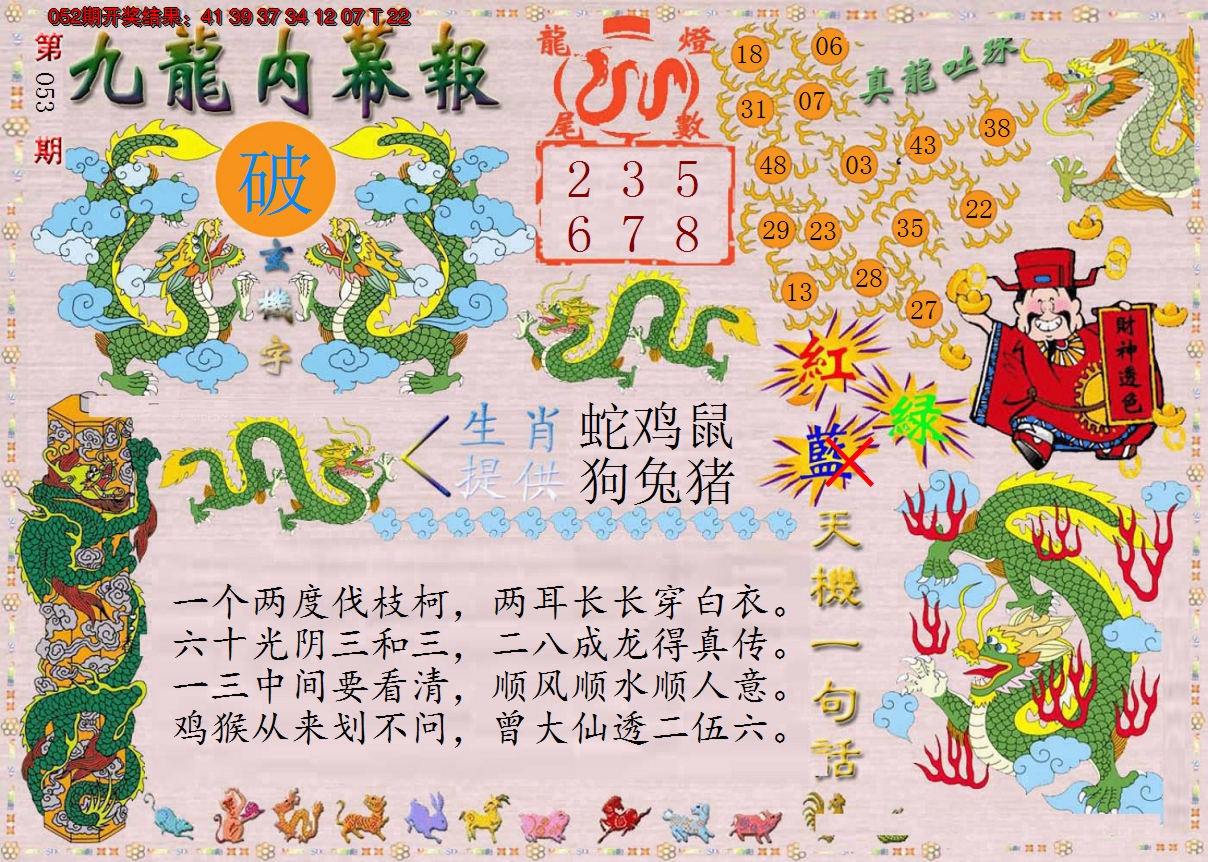 052期开奖结果：41 39 37 34 12 07 T 22
第053期
九龍内幕報
破
玄機字
龍燈尾數
2 3 5
6 7 8
真龍吐珠
18 06
31 07
48 03 43 38
29 23 35 22
13 28 27
紅
綠
藍
財神透色
生肖提供
蛇鸡鼠
狗兔猪
天機一句话
一个两度伐枝柯，两耳长长穿白衣。
六十光阴三和三，二八成龙得真传。
一三中间要看清，顺风顺水顺人意。
鸡猴从来划不问，曾大仙透二伍六。